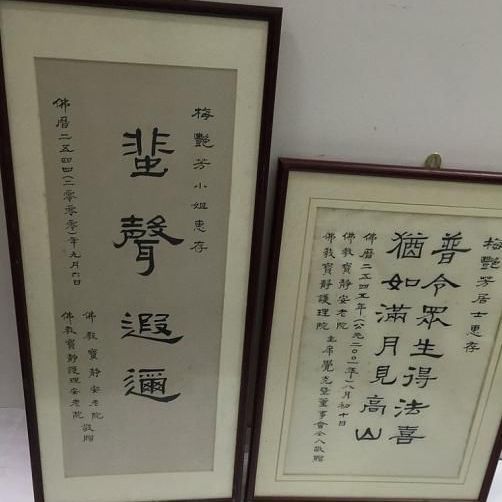 梅艷芳小姐惠存
蜚聲遐邇
佛曆二五四四(二零零零)年九月六日
佛教寶靜安老院
佛教寶靜護理安老院 敬贈
梅艷芳居士惠存
普令眾生得法喜
猶如滿月見高山
佛曆二五四五年(公元二００一年)八月初十日
佛教寶靜安老院
佛教寶靜護理院 主席覺光暨董事會仝人敬贈